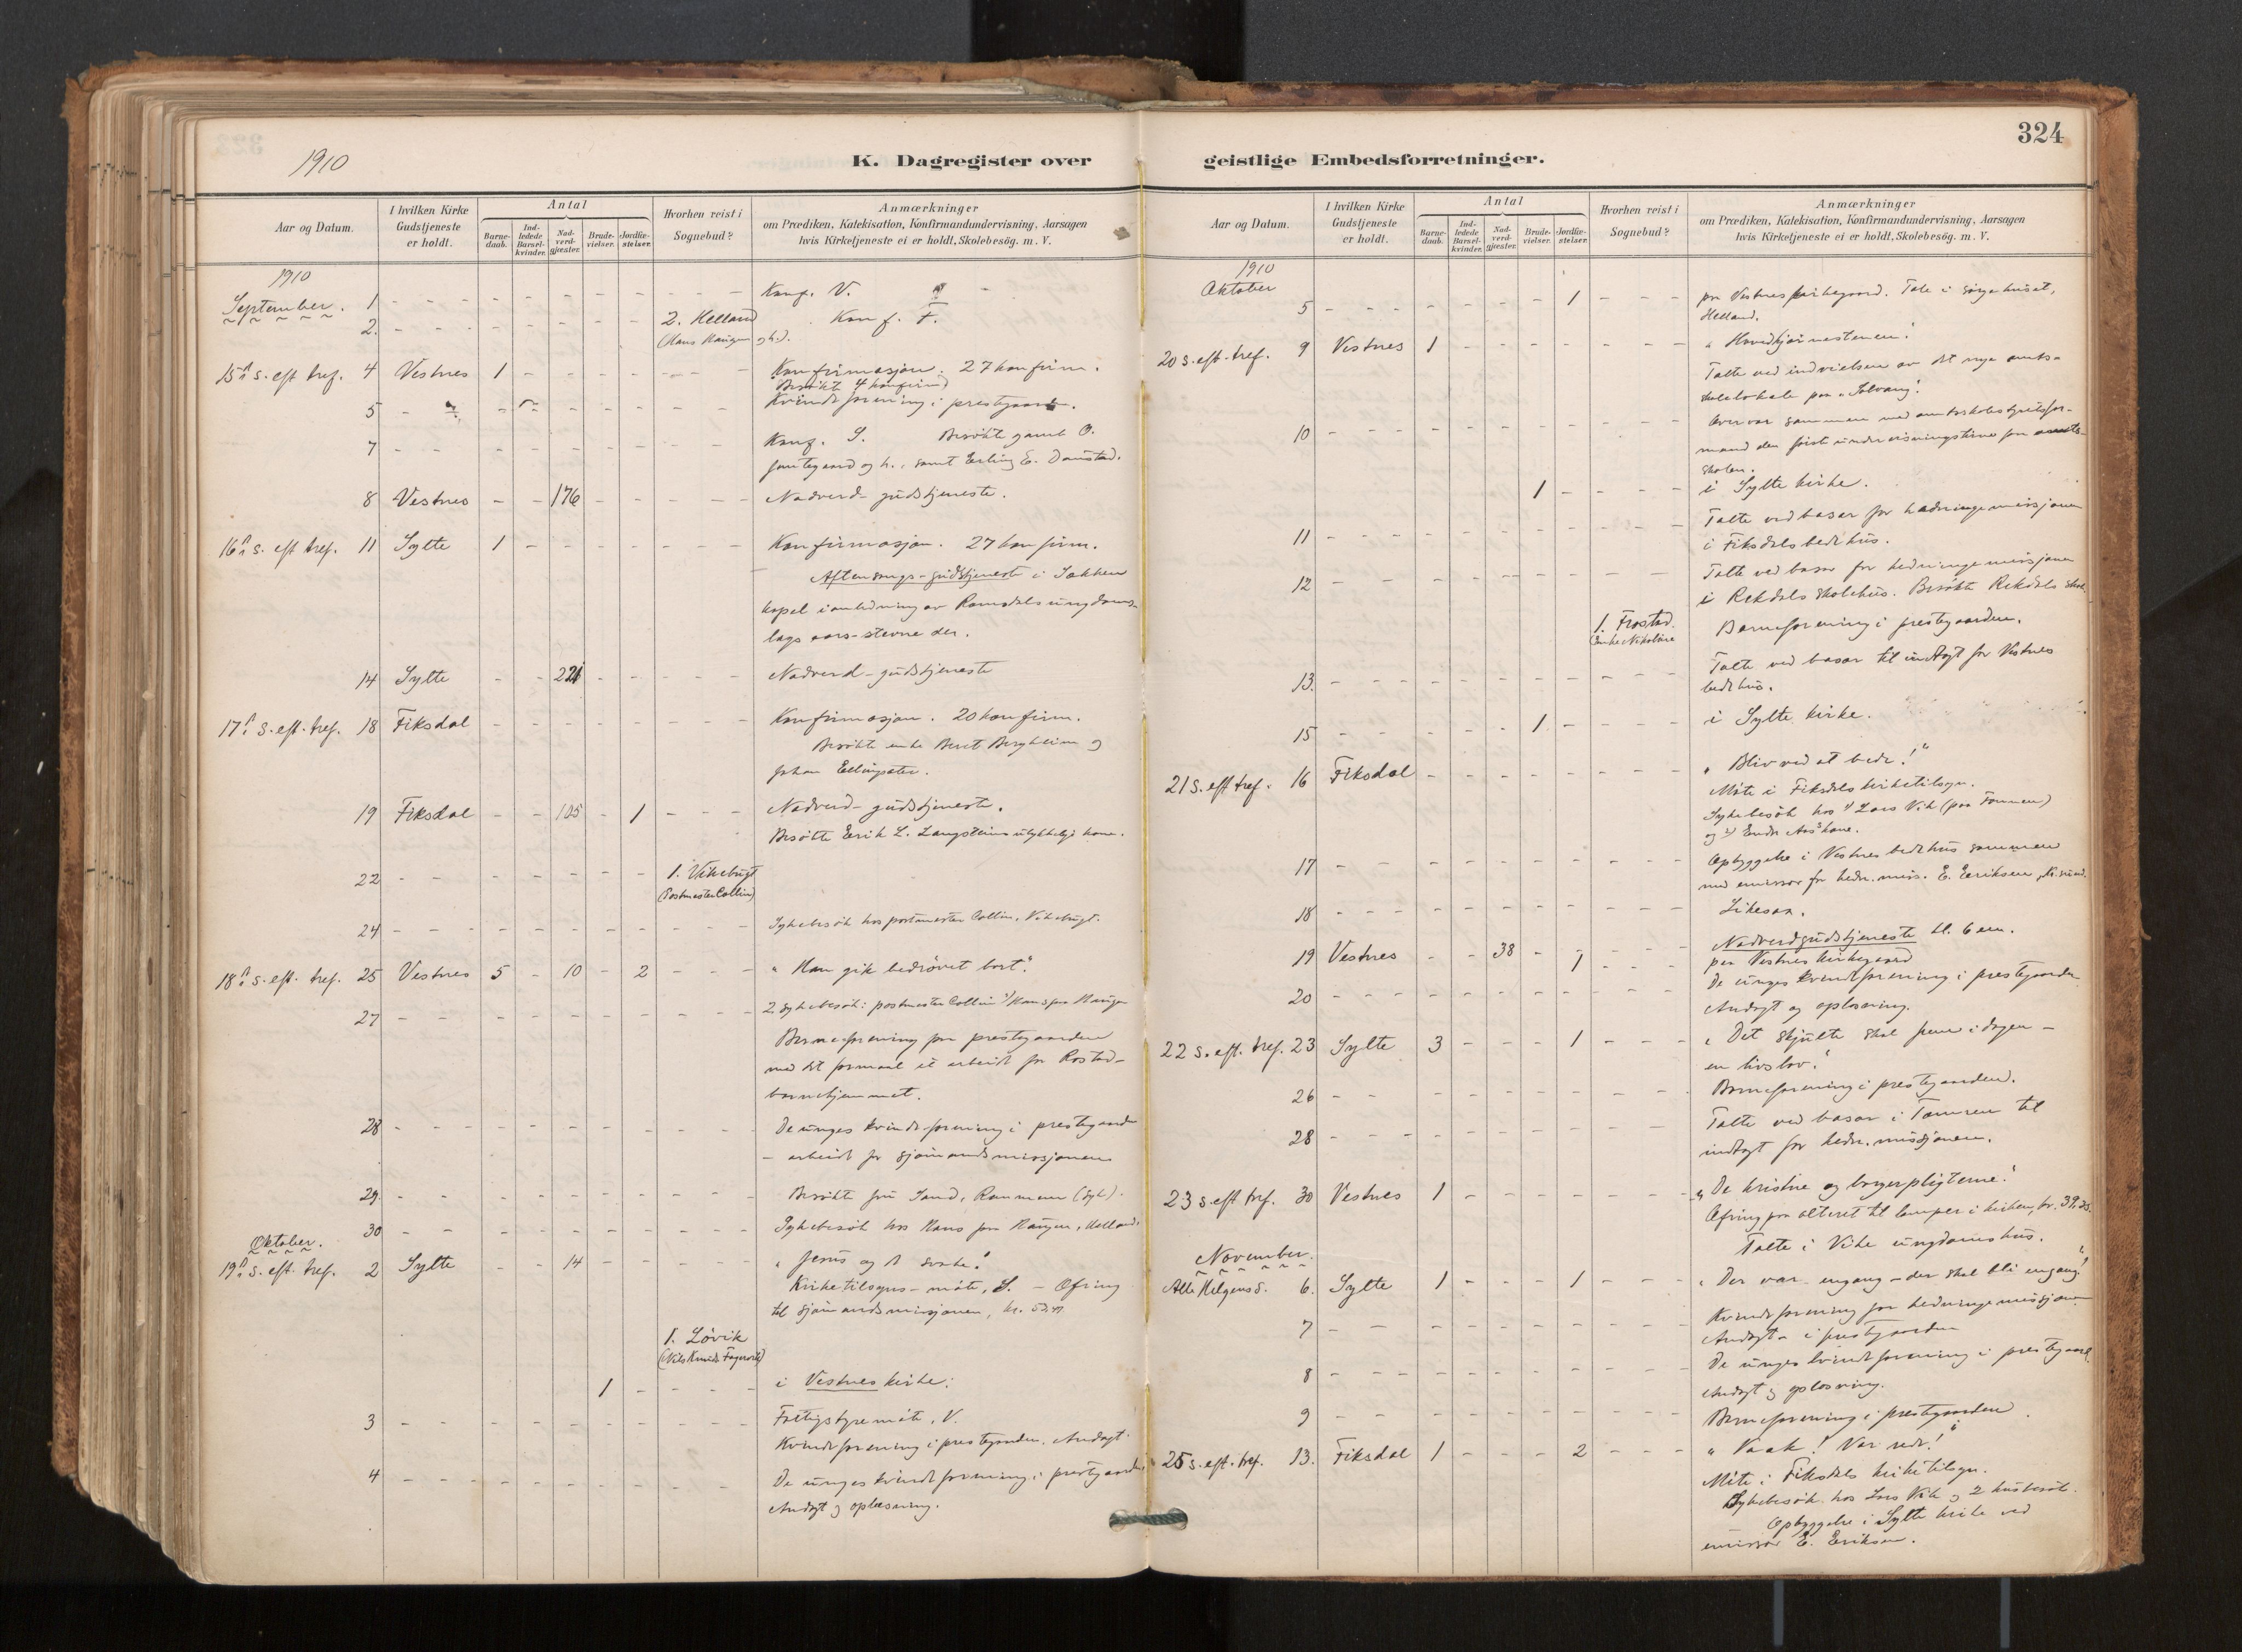 324
1910
K. Dagregister over geistlige Embedsforretninger.
Aar og Datum.
I hvilken Kirke Gudstjeneste er holdt.
Antal
Barne-daab.
Ind-ledede Barsel-kvinder.
Nad-verd-gjæster.
Brude-vielser.
Jordfæ-stelser.
Hvorhen reist i Sognebud?
Anmærkninger
om Prædiken, Katekisation, Konfirmandundervisning, Aarsagen
hvis Kirketjeneste ei er holdt, Skolebesøg. m. V.
1910
September. 1 - - - - - - - - Konf. V.
2. - - - - - - 2. Helland Konf. F.
(Hans Haugen og h.).
15de s. eft tref. 4 Vestnes 1 - - - - - Konfirmasjon. 27 konfirm.
Besøkte 4 konfirm.
5 - - - - - - Kvindeforening i prestegaarden.
7 - - - - - Konf. S. Besøkte gamle O.
og h., samt Erling E. Daustad.
8 Vestnes - - 176 - - - - Nadverd-gudstjeneste.
16de s. eft tref. 11 Sylte 1 - - - - - Konfirmasjon. 27 konfirm.
Aftensangs-gudstjeneste i Tokken
kapel i anledning av Romsdals ungdoms-
lags aars-stevne der.
14 Sylte - - 221 - - - - Nadverd-gudstjeneste
17de s. eft. tref. 18 Fiksdal - - - - - - Konfirmasjon. 20 konfirm.
Besøkte enke Beret Bergheim og
Johan Ellingsæter.
19 Fiksdal - - 105 - 1 - - - Nadverd-gudstjeneste.
Besøkte Erik L. Langsteins ulykkelige kone.
22 - - - - - - 1. Vikebugt
(Postmester Collin)
24 - - - - - - Sykebesøk hos postmester Collin, Vikebugt.
18de s. eft. tref. 25 Vestnes 5 - 10 - 2 - - - "Han gik bedrøvet bort".
27 - - - - - - 2 sykebesøk: postmester Collin, Hans paa Haugen
Barneforening paa prestegaarden
med det formaal at arbeide for Rostad-
barnehjemmet.
28 - - - - - - De unges kvindeforening i prestegaarden
- arbeide for sjømandsmissjonen
29. - - - - - - Besøkte fru Sand, Raumann (syk).
30 - - - - - - Sykebesøk hos Hans paa Haugen, Helland.
Oktober.
19de s. eft. tref. 2 Sylte - - 14 - - - - "Jesus og de syke."
Kirketilsyns-møte, S. - Ofring
til sjømandsmissjonen, kr. 53.
1. Løvik
(Nils Knuds Fagervik)
1 - - - - i Vestnes kirke.
3 - - - - - - Fattigstyremøte, V.
Kvindeforening i prestegaarden. Andagt.
4 - - - - - - De unges kvindeforening i prestegaarden.
Andagt og oplæsning.
Aar og Datum.
I hvilken Kirke Gudstjeneste er holdt.
Antal
Barne-daab.
Ind-ledede Barsel-kvinder.
Nad-verd-gjæster.
Brude-vielser.
Jordfæ-stelser.
Hvorhen reist i Sognebud?
Anmærkninger
om Prædiken, Katekisation, Konfirmandundervisning, Aarsagen
hvis Kirketjeneste ei er holdt, Skolebesøg. m. V.
1910
Oktober
5 - - - - - 1 - - - paa Vestnes kirkegaard. Tale i sørgehuset,
Helland.
20 s. eft. tref. 9 Vestnes 1 - - - - - - - "Hovedhjørnestenen."
Talte ved indvielsen av det nye amts-
skolelokale paa "Solvang".
10 - - - - - - Overvar sammen med amtsskolestyrets for-
mand den første undervisningstime paa amts-
skolen.
1 - - - - i Sylte kirke.
11 - - - - - - Talte ved basar for hedningemissjonen
i Fiksdals bedehus.
12 - - - - - - Talte ved basar for hedningemissjonen
i Rekdals skolehus. Besøkte Rekdals skole
1. Frostad. Barneforening i prestegaarden.
(Enke Nikoline
13. - - - - - - Talte ved basar til indtægt for Vestnes
bedehus.
15 - - - - - 1 - - - i Sylte kirke.
21 s. eft tref. 16 Fiksdal - - - - - - "Bliv ved at bede!"
Møte i Fiksdals kirketilsyn.
Sykebesøk hos 1) Lars Vik (paa Tommen)
og 2) Endr. Aas's kone.
17 - - - - - - Opbyggelse i Vestnes bedehus sammen
med emissær for hedn. miss. E. Eriksen, Kr.sund.
18 - - - - - - Likesaa.
19 Vestnes - - 38 - 1 - - - Nadverdgudstjeneste kl. 6 em.
paa Vestnes kirkegaard
20 - - - - - - De unges kvindeforening i prestegaarden.
Andagt og oplæsning.
22 s. eft. tref. 23 Sylte 3 - - - 1 - - - "Det skjulte skal frem i dagen -
en livslov."
26 - - - - - - Barneforening i prestegaarden.
28 - - - - - - Talte ved basar i Tomren til
indtægt for hedn. missjonen.
23 s. eft tref. 30 Vestnes 1 - - - - - "De kristne og borgerpligterne."
Ofring paa alteret til lamper i kirken, kr. 39,25.
Talte i Vike ungdomshus.
November.
Alle Helgens d. 6. Sylte 1 - - - 1 - - - "Der var engang - der skal bli engang!"
7 - - - - - - Kvindeforening for hedningemissjonen.
Andagt i prestegaarden
8 - - - - - - De unges kvindeforening i prestegaard.
Andagt og oplæsning.
9 - - - - - - Barneforening i prestegaarden
25 s. eft. tref. 13. Fiksdal 1 - - - 2 - - - "Vaak! Vær rede!"
Møte i Fiksdals kirketilsyn.
Sykebesøk hos Lars Vik og 2 husbesøk.
Opbyggelse i Sylte kirke ved
emissær E. Eriksen.